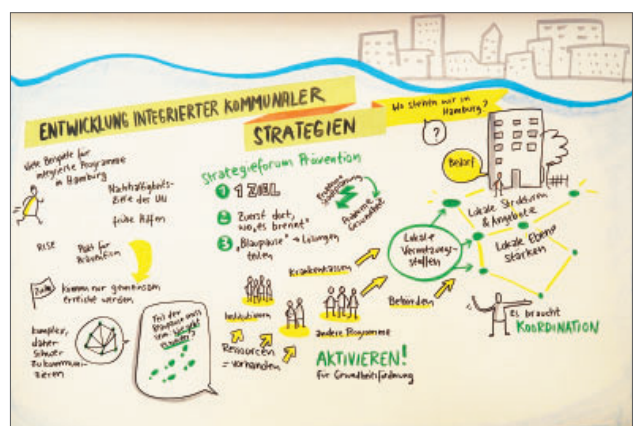 ENTWICKLUNG INTEGRIERTER KOMMUNALER
STRATEGIEN
Wo stehen wir in
Hamburg?
?
Viele Beispiele für
integrierte Programme
in Hamburg
Nachhaltigkeits-
Ziele der UN
frühe Hilfen
RISE
Pakt für
Prävention
Ziele
Können nur gemeinsam
erreicht werden
Komplex,
daher
schwer
zu kommuni-
zieren
Teil der
Blaupause muss
sein: Wie geht
es weiter?
Strategieforum Prävention
1 1 ZIEL
2 Zuerst dort,
wo „es brennt"
3 „Blaupause" → Lösungen
teilen
Akademie
Gesundheit
Krankenkassen
Institutionen
andere Programme
Behörden
Ressourcen
= vorhanden
AKTIVIEREN!
für Gesundheitsförderung
Lokale
Vernetzungs-
stellen
Bedarf
Lokale Strukturen
& Angebote
Lokale Ebene
stärken
Es braucht
KOORDINATION